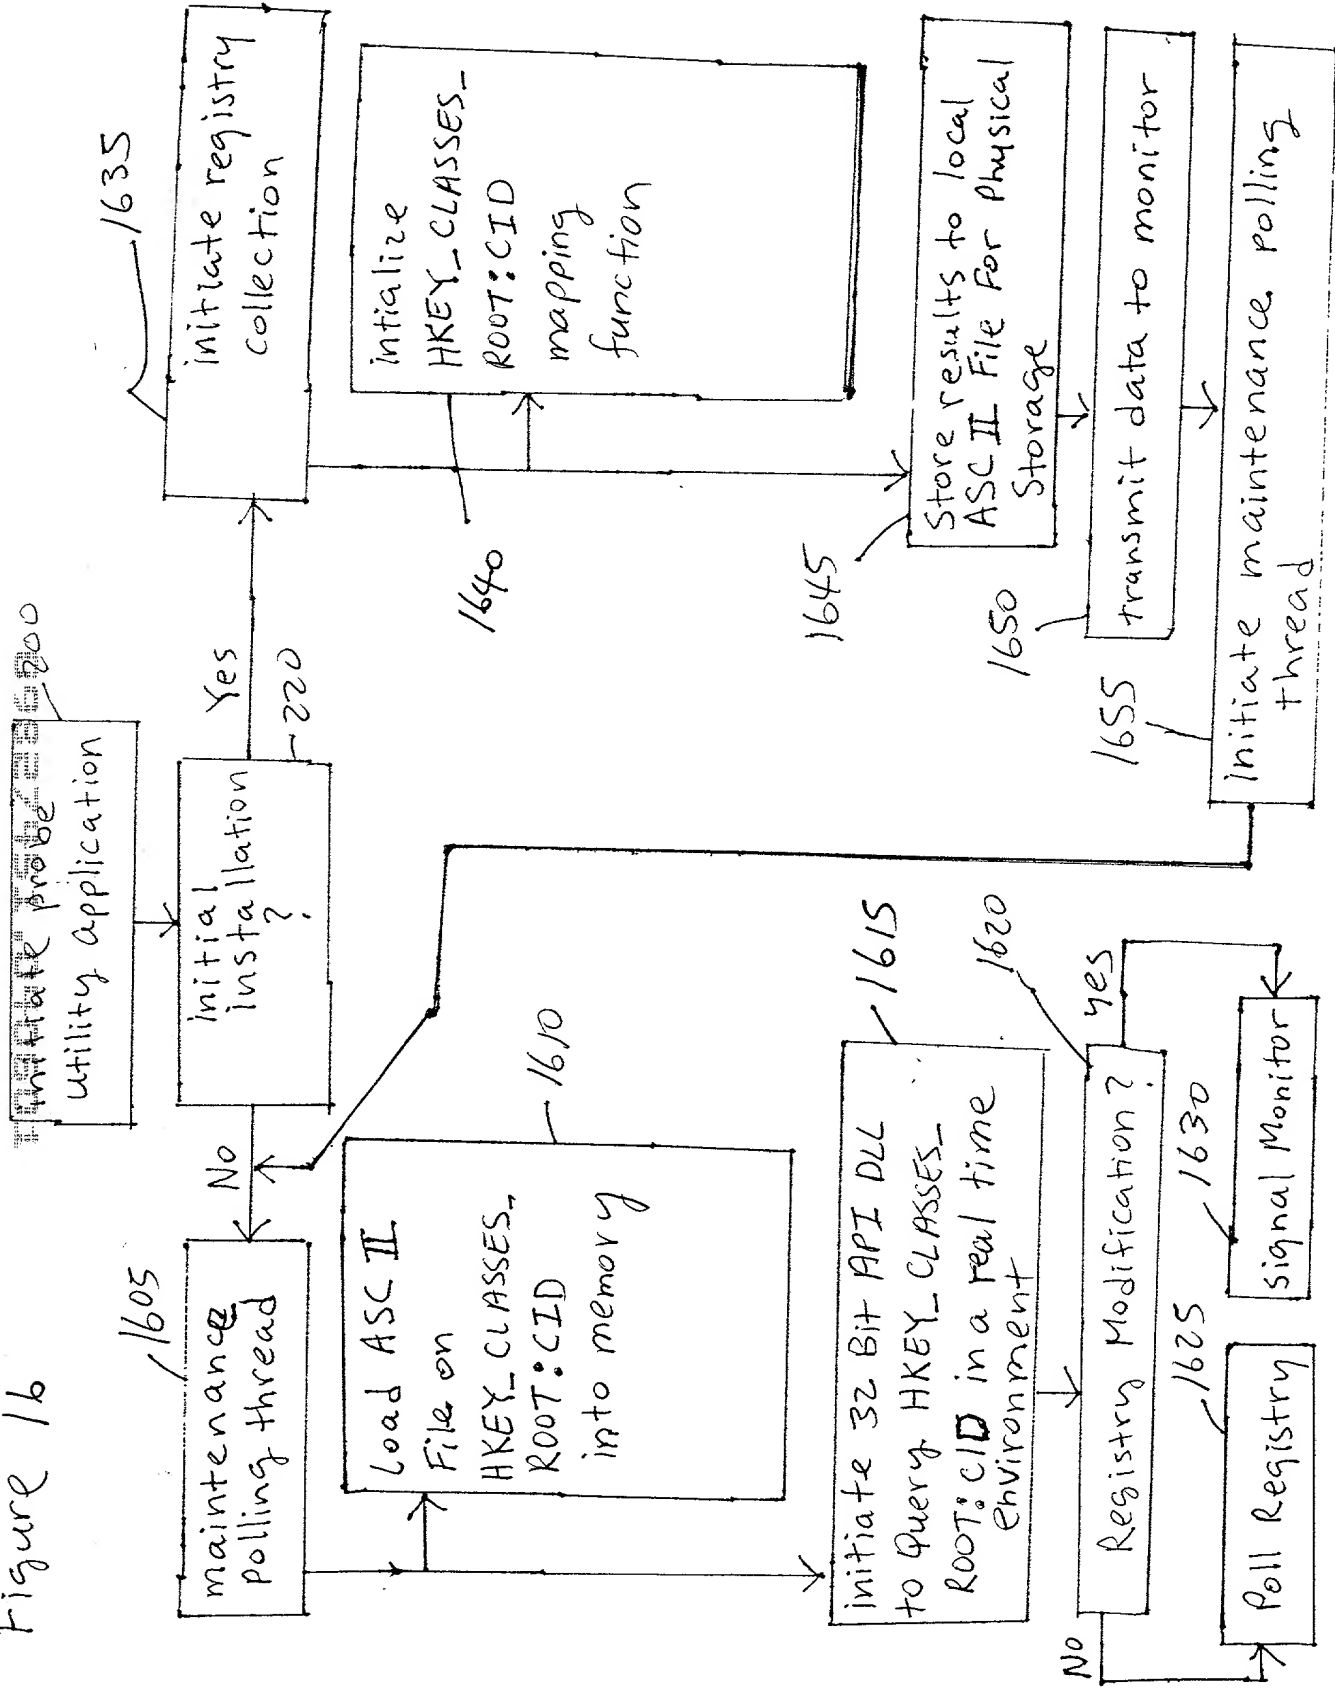 Figure 16
initiate probe
utility application
200
initial
installation
?
220
No
Yes
1605
maintenance
polling thread
Load ASC II
File on
HKEY_CLASSES_
ROOT:CID
into memory
1610
initiate 32 Bit API DLL
to Query HKEY_CLASSES_
ROOT:CID in a real time
environment
1615
Registry Modification?
1620
No
yes
1625
Poll Registry
1630
Signal Monitor
1635
initiate registry
collection
intialize
HKEY_CLASSES_
ROOT:CID
mapping
function
1640
1645
Store results to local
ASC II File For Physical
Storage
1650
transmit data to monitor
1655
initiate maintenance polling
thread